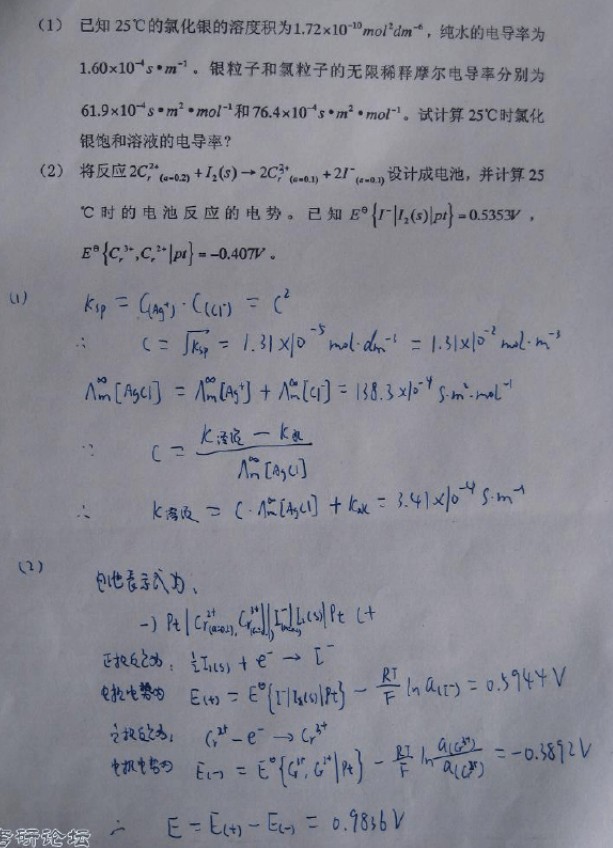 (1) 已知 25℃的氯化银的溶度积为1.72×10⁻¹⁰mol²dm⁻⁶，纯水的电导率为
1.60×10⁻⁴s•m⁻¹。银粒子和氯粒子的无限稀释摩尔电导率分别为
61.9×10⁻⁴s•m²•mol⁻¹和76.4×10⁻⁴s•m²•mol⁻¹。试计算25℃时氯化
银饱和溶液的电导率?
(2) 将反应2Cr²⁺(a=0.2)+I₂(s)→2Cr³⁺(a=0.1)+2I⁻(a=0.1)设计成电池，并计算 25
℃时的电池反应的电势。已知 E^Θ{I⁻|I₂(s)|pt}=0.5353V，
E^Θ{Cr³⁺,Cr²⁺|pt}=-0.407V。
(1) Ksp = C(Ag⁺)·C(Cl⁻) = C²
∴ C = √Ksp = 1.31×10⁻⁵ mol·dm⁻³ = 1.31×10⁻² mol·m⁻³
Λm^∞[AgCl] = Λm^∞[Ag⁺] + Λm^∞[Cl⁻] = 138.3×10⁻⁴ S·m²·mol⁻¹
∵ C = (K溶液 − K水) / Λm^∞[AgCl]
∴ K溶液 = C·Λm^∞[AgCl] + K水 = 3.41×10⁻⁴ S·m⁻¹
(2) 电池表示式为:
-) Pt | Cr²⁺(a=0.2), Cr³⁺(a=0.1) || I⁻(a=0.1) | I₂(s) | Pt (+
正极反应为: ½I₂(s) + e⁻ → I⁻
电极电势为 E(+) = E^Θ{I⁻|I₂(s)|Pt} − RT/F ln a(I⁻) = 0.5944V
负极反应为: Cr²⁺ − e⁻ → Cr³⁺
电极电势为 E(-) = E^Θ{Cr³⁺, Cr²⁺|Pt} − RT/F ln a(Cr²⁺)/a(Cr³⁺) = −0.3892V
∴ E = E(+) − E(-) = 0.9836V
考研论坛